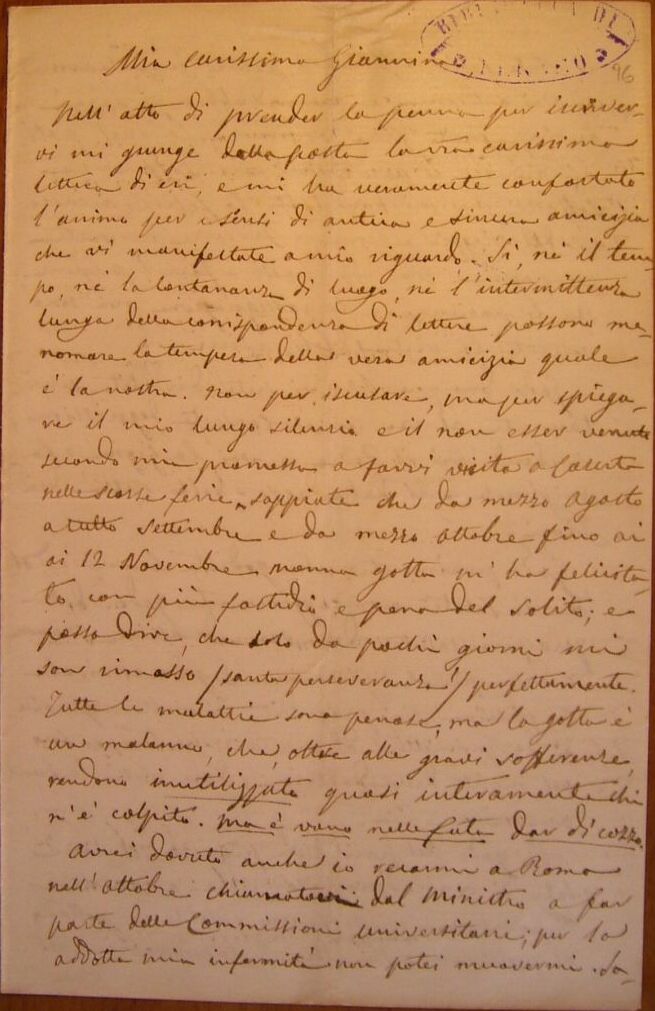 Mia carissima Giannina
BIBLIOTECA DI
96
Nell' atto di prender la penna per iscriver-
vi mi giunge dalla posta la vra carissima
lettera di eri, e mi ha veramente confortato
l'animo per i sensi di antica e sincera amicizia
che vi manifestate a mio riguardo. Sì, nè il tem-
po, nè la lontananza di luogo, nè l'intermittenza
lunga della corrispondenza di lettere possono me-
nomare la tempera della vera amicizia quale
è la nostra. Non per iscusare, ma per spiega-
re il mio lungo silenzio e il non esser venuto
secondo mia promessa a farvi visita a Caserta
nelle scorse ferie, sappiate che da mezzo agosto
a tutto Settembre e da mezzo ottobre fino ai
ai 12 Novembre nonna gotta m' ha felicita-
to con più fastidio e pena del solito; e
posso dire, che solo da pochi giorni mi
son rimesso (santa perseveranza!) perfettamente.
Tutte le malattie sono penose, ma la gotta è
un malanno, che, oltre alle gravi sofferenze,
rendono inutilizzato quasi interamente chi
n' è colpito. Ma è vano nelle fata dar di cozzo.
Avrei dovuto anche io recarmi a Roma
nell'ottobre chiamatovi dal Ministro a far
parte delle Commissioni universitarie; per la
addotta mia infermità non potei muovermi. So-